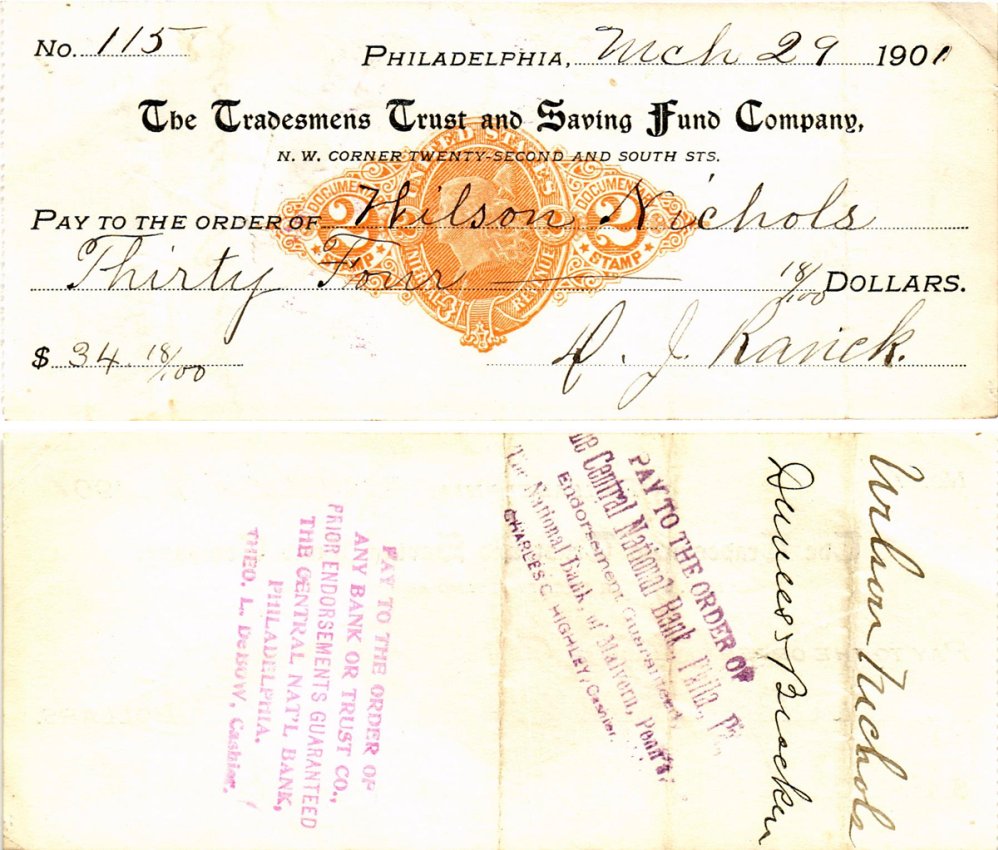 No. 115
PHILADELPHIA, Mch 29 1901
The Tradesmens Trust and Saving Fund Company,
N. W. CORNER TWENTY-SECOND AND SOUTH STS.
PAY TO THE ORDER OF Wilson Nichols
Thirty Four 18/100 DOLLARS.
$ 34. 18/100
J. Ranck.
UNITED STATES
INTERNAL REVENUE
DOCUMENTARY
2
STAMP
DOCUMENTARY
2
STAMP
Wilson Nichols
PAY TO THE ORDER OF
The Central National Bank, Phila., Pa.
Endorsement Guaranteed,
The National Bank, of Malvern, Penn'a,
CHARLES C. HIGHLEY, Cashier.
PAY TO THE ORDER OF
ANY BANK OR TRUST CO.,
PRIOR ENDORSEMENTS GUARANTEED
THE CENTRAL NAT'L BANK,
PHILADELPHIA.
THEO. L. DeBOW, Cashier.